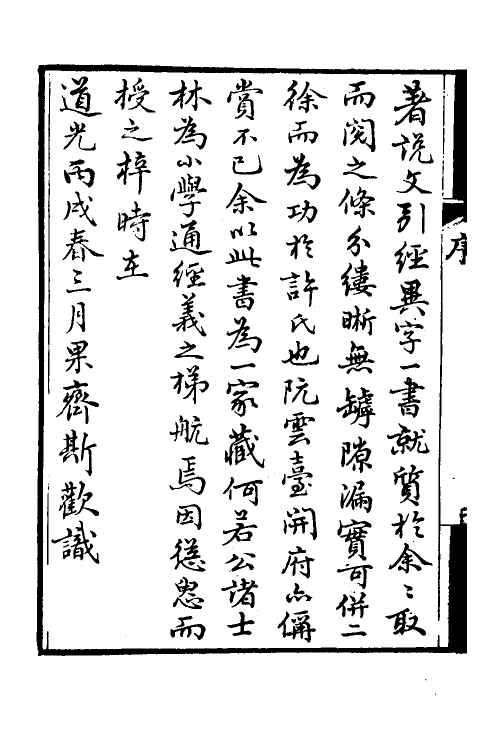 著說文引經異字一書就質於余〻取
而閱之條分縷晰無罅隙漏實可併二
徐而為功於許氏也阮雲臺開府亦偁
賞不已余以此書為一家藏何若公諸士
林為小學通經義之梯航焉因慫恿而
授之梓時在
道光丙戌春三月果齋斯歡識
序